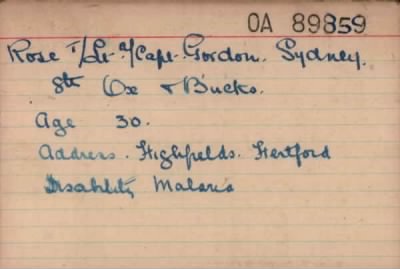 OA 89859
Rose T/Lt. A/Capt. Gordon. Sydney.
8th Ox & Bucks.
Age 30.
Address. Highfields. Hertford
Disability Malaria